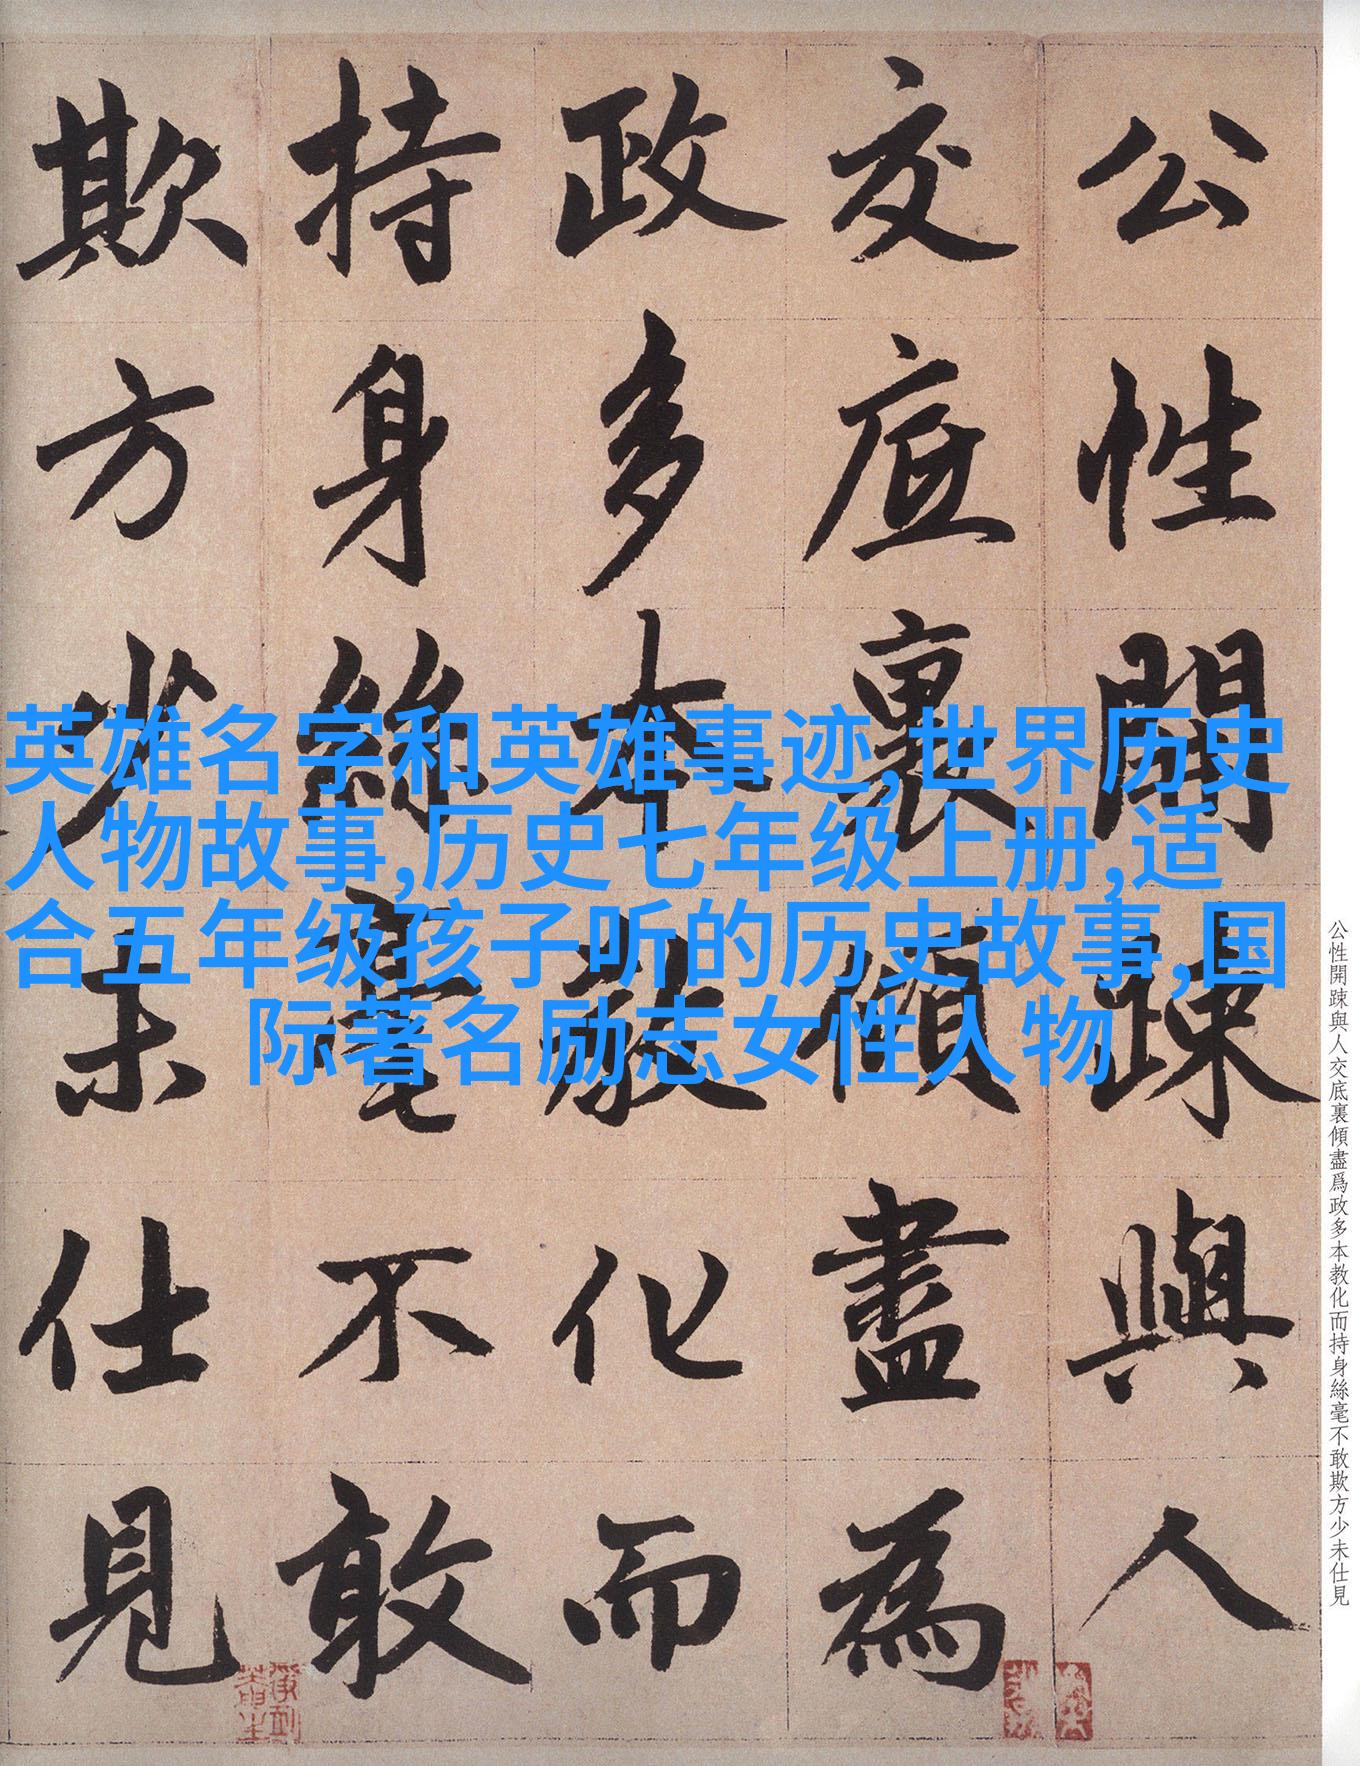 公性開踈與人
交底裏傾盡為
政多本教化而
持身絲毫不敢
欺方少未仕見
英雄名字和英雄事迹,世界历史
人物故事,历史七年级上册,适
合五年级孩子听的历史故事,国
际著名励志女性人物
公性開踈與人交底裏傾盡爲政多本教化而持身絲毫不敢欺方少未仕見